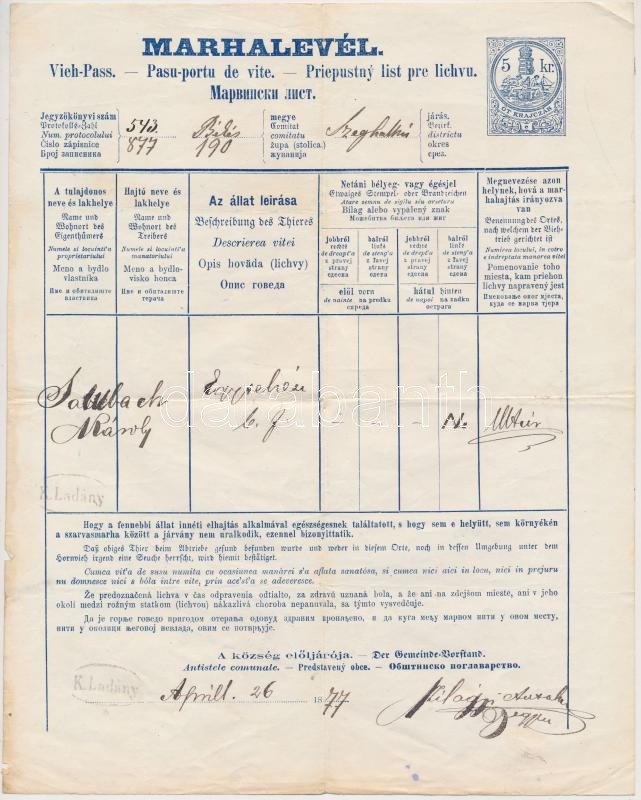 MARHALEVÉL.
Vieh-Pass. — Pasu-portu de vite. — Priepustný list pre lichvu.
Марвински лист.
5 kr.
ÖT KRAJCZÁR
Jegyzőkönyvi szám
Protokolls-Zahl
Num. protocolului
Číslo zápisnice
Број записника
543
877
Békés
190
megye
Comitat
comitatu
župa (stolica)
жупанија
Szeghalmi
járás.
Bezirk.
districtu
okres
срез.
A tulajdonos
neve és lakhelye
Name und
Wohnort des
Eigenthümers
Numele si locuint'a
proprietariului
Meno a bydlo
vlastníka
Име и обиталиште
властника
Hajtó neve és
lakhelye
Name und
Wohnort des
Treibers
Numele si locuint'a
manatoriului
Meno a bydlo-
visko honca
Име и обиталиште
терача
Az állat leirása
Beschreibung des Thieres
Descrierea vitei
Opis hoväda (lichvy)
Опис говеда
Netáni bélyeg- vagy égésjel
Etwaiges Stempel- oder Brandzeichen
Atare semnu de sigilu séu arsetura
Bilag alebo vypálený znak
Можебитна билега или жиг
jobbról
rechts
de drept'a
z pravej
strany
сдесна
balról
links
de steng'a
z ľavej
strany
слева
jobbról
rechts
de drept'a
z pravej
strany
сдесна
balról
links
de steng'a
z ľavej
strany
слева
elöl vorn
de nainte na predku
спреда
hátul hinten
de napoi na zadku
острага
Megnevezése azon
helynek, hová a mar-
hahajtás irányozva
van
Benennung des Ortes,
nach welchem der Vieh-
trieb gerichtet ist
Numirea locului, in cotro
e indreptata manarea vitei
Pomenovanie toho
miesta, kam priehon
lichvy napravený jest
Именовање оног места,
куда се марва тјера
Károly
6. f
— — — N.
K. Ladány
Hogy a fennebbi állat innéti elhajtás alkalmával egészségesnek találtatott, s hogy sem e helyütt, sem környékén
a szarvasmarha között a járvány nem uralkodik, ezennel bizonyittatik.
Daß obiges Thier beim Abtriebe gesund befunden wurde und weder in diesem Orte, noch in dessen Umgebung unter dem
Hornvieh irgend eine Seuche herrscht, wird hiemit bestätiget.
Cumca vit'a de susu numita cu ocasiunea manărei s'a aflata sanatósa, si cumca nici aici in locu, nici in prejuru
nu domnesce nici s bóla intre vite, prin acést'a se adeveresce.
Že predoznačená lichva v čas odpravenia odtialto, za zdravú uznaná bola, a že ani na zdejšom mieste, ani v jeho
okolí medzi rožným statkom (lichvou) nákazlivá choroba nepanuvala, sa týmto vysvedčuje.
Да је горње говедо приликом отерања одовуд здраво пронађено, и да куга међу марвом нити у овом месту,
нити у околици његовој невлада, овим се потврђује.
A község előljárója. — Der Gemeinde-Vorstand.
Antistele comunale. — Predstavený obce. — Обштинско поглаварство.
K. Ladány
Aprill. 26 1877
darabanth